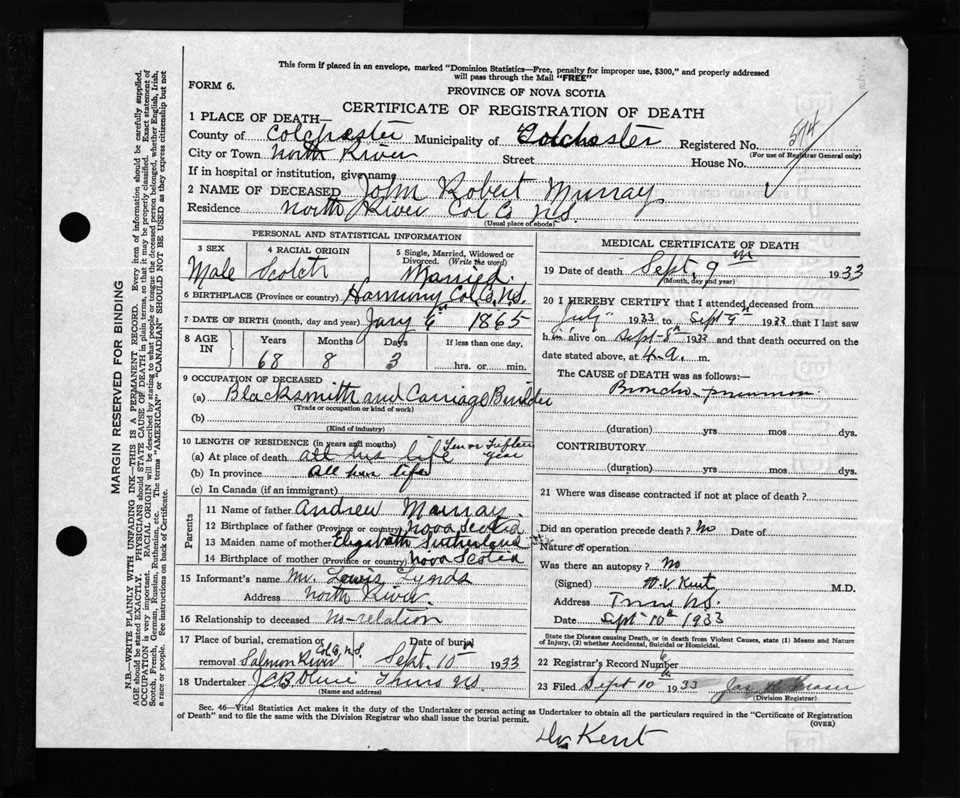 This form if placed in an envelope, marked "Dominion Statistics—Free, penalty for improper use, $300," and properly addressed
will pass through the Mail "FREE"
FORM 6.
PROVINCE OF NOVA SCOTIA
CERTIFICATE OF REGISTRATION OF DEATH
1 PLACE OF DEATH—
County of Colchester Municipality of Colchester Registered No. 574
(For use of Registrar General only)
City or Town North River Street House No.
If in hospital or institution, give name
2 NAME OF DECEASED John Robert Murray
Residence North River Col Co N.S.
(Usual place of abode)
PERSONAL AND STATISTICAL INFORMATION
3 SEX 4 RACIAL ORIGIN 5 Single, Married, Widowed or
Divorced. (Write the word)
Male Scotch Married.
6 BIRTHPLACE (Province or country) Harmony Col Co, N.S.
7 DATE OF BIRTH (month, day and year) Jany 6th 1865
8 AGE IN Years Months Days If less than one day,
68 8 3 hrs. or min.
9 OCCUPATION OF DECEASED
(a) Blacksmith and Carriage Builder
(Trade or occupation or kind of work)
(b)
(Kind of industry)
10 LENGTH OF RESIDENCE (in years and months)
(a) At place of death all his life Ten or Fifteen year
(b) In province All his life
(c) In Canada (if an immigrant)
Parents
11 Name of father Andrew Murray.
12 Birthplace of father (Province or country) Nova Scotia
13 Maiden name of mother Elizabeth Sutherland
14 Birthplace of mother (Province or country) Nova Scotia
15 Informant's name Mr. Lewis Lynds
Address North River.
16 Relationship to deceased no-relation
17 Place of burial, cremation or Date of burial
removal Salmon River Col Co, N.S. Sept. 10 1933
18 Undertaker N.S.
(Name and address)
MEDICAL CERTIFICATE OF DEATH
19 Date of death Sept. 9th 1933
(Month, day and year)
20 I HEREBY CERTIFY that I attended deceased from
July 1933 to Sept 9th 1933 that I last saw
him alive on Sept 8th 1933 and that death occurred on the
date stated above, at 4 a. m.
The CAUSE OF DEATH was as follows:—
Broncho-pneumon.
(duration) yrs mos dys.
CONTRIBUTORY
(duration) yrs mos dys.
21 Where was disease contracted if not at place of death?
Did an operation precede death? No Date of
Nature of operation
Was there an autopsy? No
(Signed) Kent M.D.
Address Truro N.S.
Date Sept 10th 1933
State the Disease causing Death, or in death from Violent Causes, state (1) Means and Nature
of Injury, (2) whether Accidental, Suicidal or Homicidal.
22 Registrar's Record Number 6
23 Filed Sept 10th 1933 Fraser
(Division Registrar)
Sec. 46—Vital Statistics Act makes it the duty of the Undertaker or person acting as Undertaker to obtain all the particulars required in the "Certificate of Registration
of Death" and to file the same with the Division Registrar who shall issue the burial permit.
(OVER)
Dr Kent
MARGIN RESERVED FOR BINDING
N.B.—WRITE PLAINLY WITH UNFADING INK—THIS IS A PERMANENT RECORD. Every item of information should be carefully supplied.
AGE should be stated EXACTLY. PHYSICIANS should STATE CAUSE OF DEATH in plain terms, so that it may be properly classified. Exact statement of
OCCUPATION is very important. RACIAL ORIGIN will be described by stating to what people or tongue the deceased person belonged, whether English, Irish,
Scotch, French, German, Russian, Ruthenian, etc. The terms "AMERICAN" or "CANADIAN" SHOULD NOT BE USED as they express citizenship but not
a race or people. See instructions on back of Certificate.